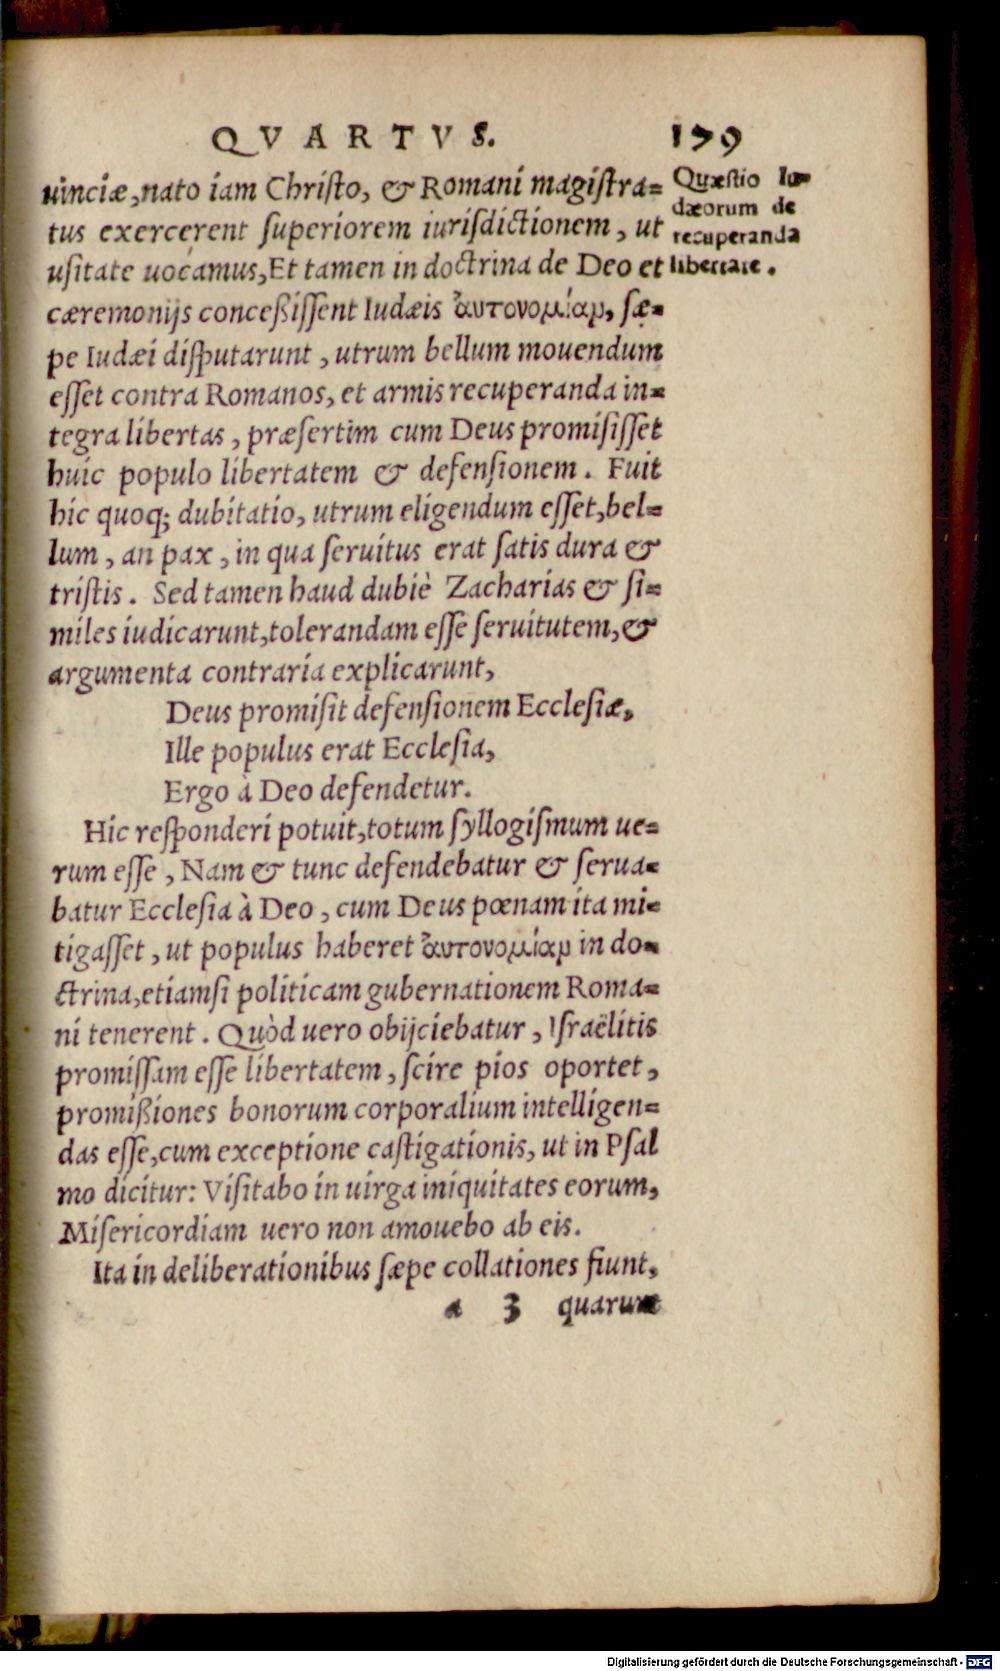 QVARTVS. 179
uinciæ, nato iam Christo, & Romani magistra=
tus exercerent superiorem iurisdictionem, ut
usitate uocamus, Et tamen in doctrina de Deo et
cæremonijs conceßissent Iudæis ἀυτονομίαμ, sæ=
pe Iudæi disputarunt, utrum bellum mouendum
esset contra Romanos, et armis recuperanda in=
tegra libertas, præsertim cum Deus promisisset
huic populo libertatem & defensionem. Fuit
hic quoq; dubitatio, utrum eligendum esset, bel=
lum, an pax, in qua seruitus erat satis dura &
tristis. Sed tamen haud dubiè Zacharias & si=
miles iudicarunt, tolerandam esse seruitutem, &
argumenta contraria explicarunt,
Deus promisit defensionem Ecclesiæ,
Ille populus erat Ecclesia,
Ergo à Deo defendetur.
Hic responderi potuit, totum syllogismum ue=
rum esse, Nam & tunc defendebatur & serua=
batur Ecclesia à Deo, cum Deus pœnam ita mi=
tigasset, ut populus haberet ἀυτονομίαμ in do=
ctrina, etiamsi politicam gubernationem Roma=
ni tenerent. Quòd uero obijciebatur, Israëlitis
promissam esse libertatem, scire pios oportet,
promißiones bonorum corporalium intelligen=
das esse, cum exceptione castigationis, ut in Psal
mo dicitur: Visitabo in uirga iniquitates eorum,
Misericordiam uero non amouebo ab eis.
Ita in deliberationibus sæpe collationes fiunt,
a 3 quarum
Quæstio Iu=
dæorum de
recuperanda
libertate.
Digitalisierung gefördert durch die Deutsche Forschungsgemeinschaft - DFG